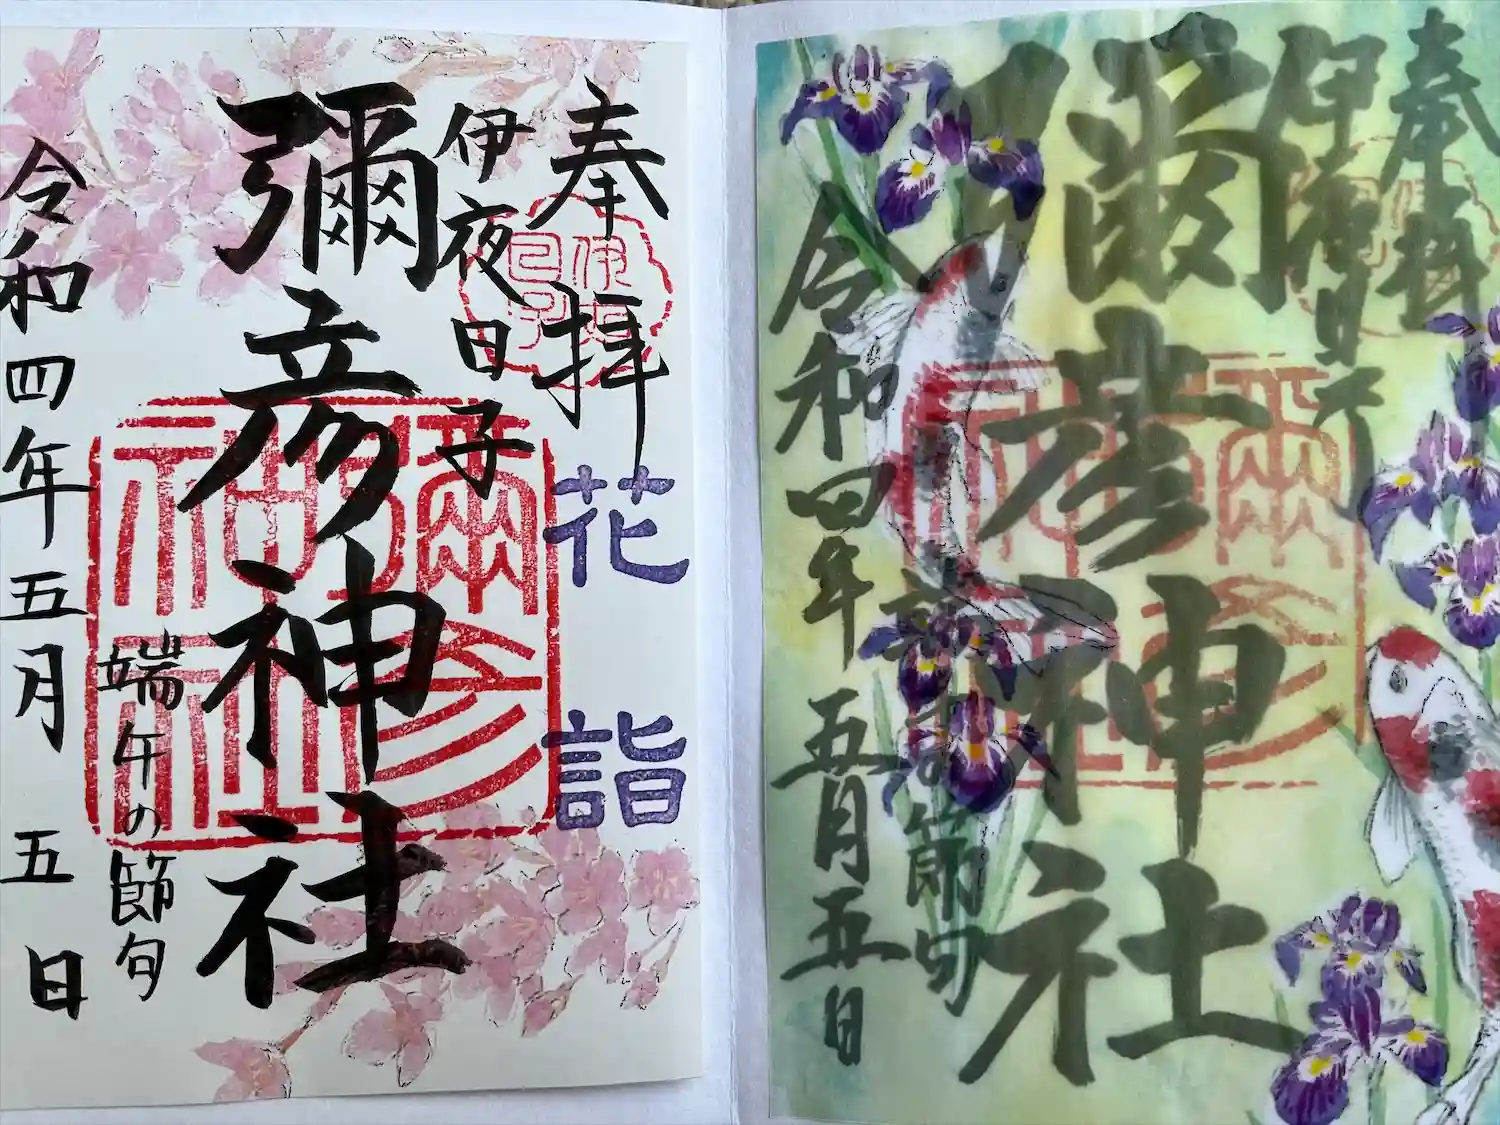 奉拝
花詣
伊夜日子
彌彦神社
端午の節句
令和四年五月五日
彌彦神社
奉拝
伊夜日子
彌彦神社
彌彦神社
の節句
令和四年五月五日